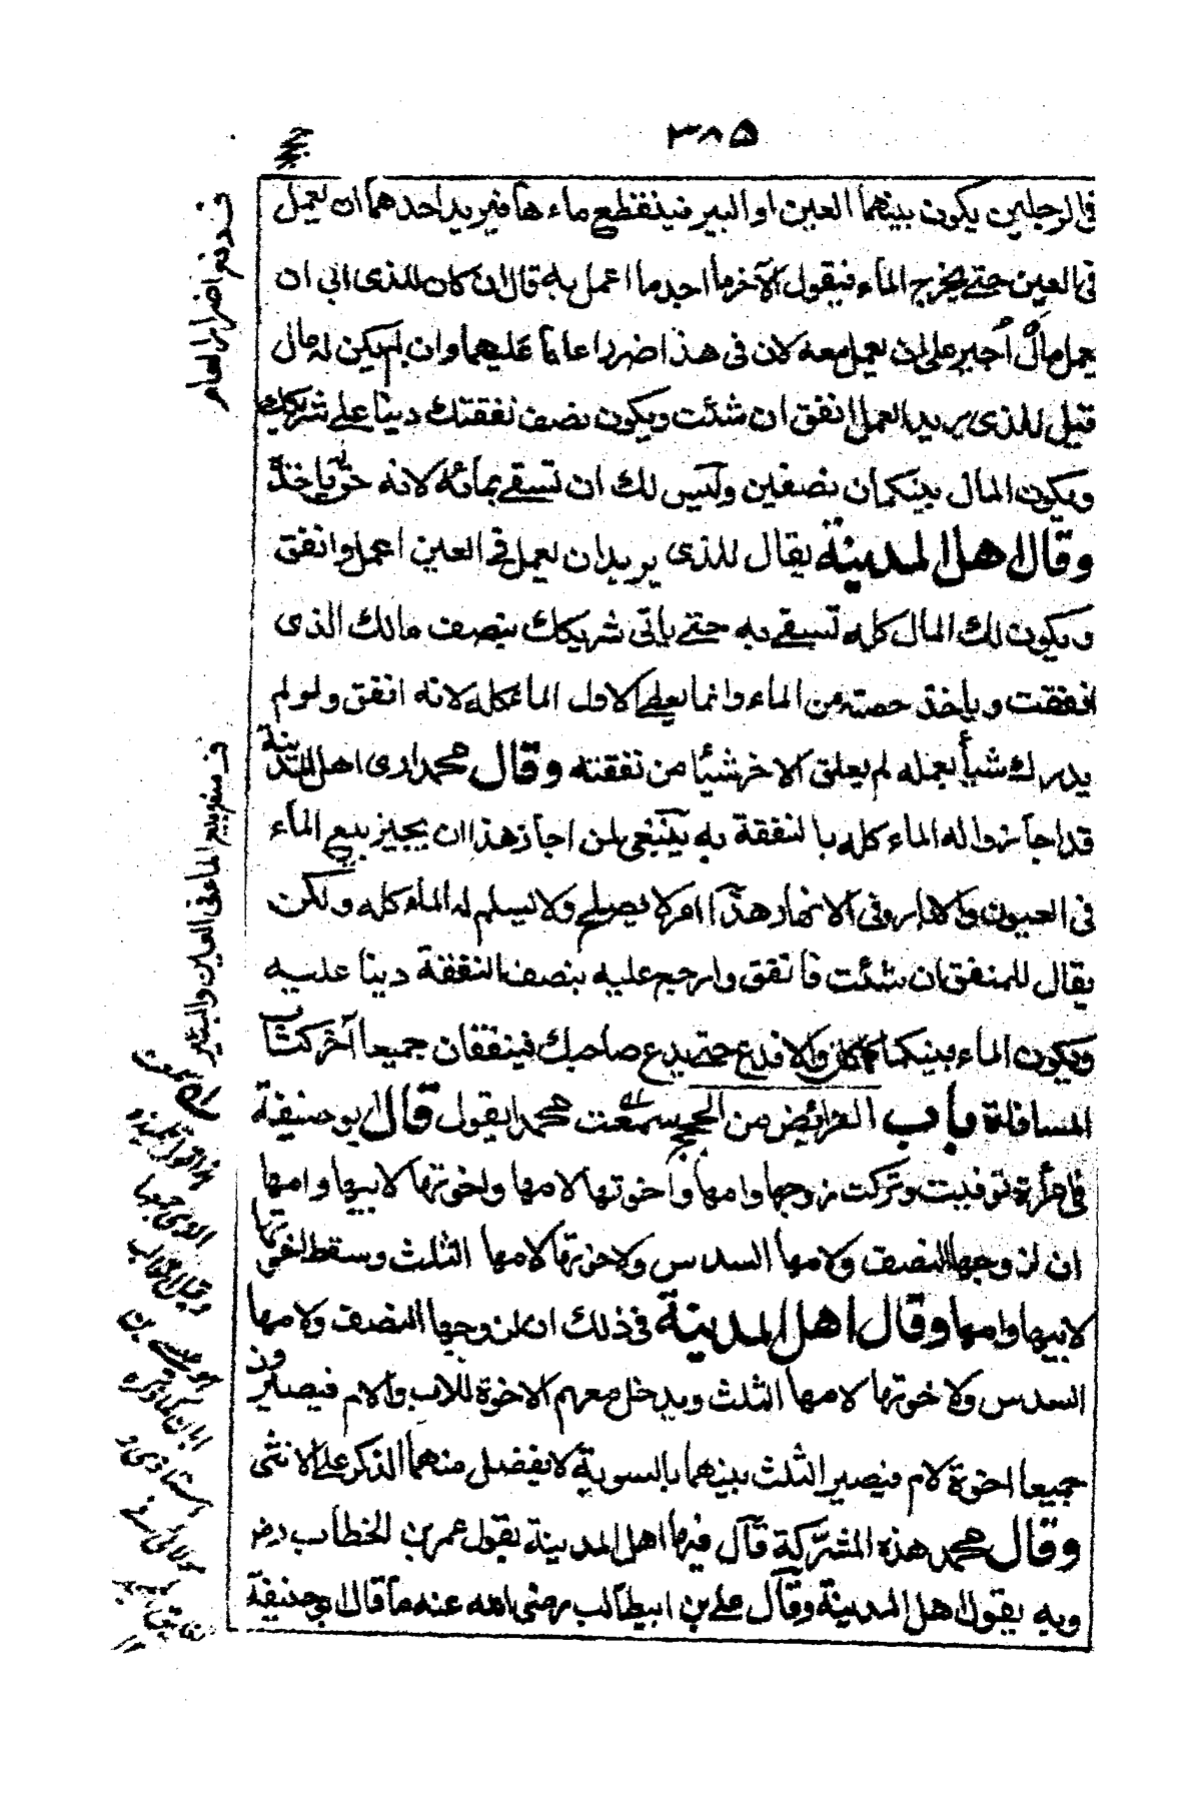 ٣٨٥
فى الرجلين يكون بينهما العين او البير فينقطع ماءها فيريد احدهما ان يعمل
فى العين حتى يخرج الماء فيقول الآخر ما اجد ما اعمل به قال ان كان للذى ابى ان
يعمل مال اُجبر على ان يعمل معه لان فى هذا ضررا عاما عليهما وان لم يكن له مال
قيل للذى يريد العمل انفق ان شئت ويكون نصف نفقتك دينا على شريكك
ويكون المال بينكما نصفين وليس لك ان تسقى بمائه لانه حق ياخذ
وقال اهل المدينة يقال للذى يريد ان يعمل فى العين اعمل وانفق
ويكون لك المال كله تسقى به حتى ياتى شريكك بنصف مالك الذى
انفقت وياخذ حصته من الماء وانما يعطى الاول الماء كله لانه انفق ولو لم
يدرك شيأ بعمله لم يعلق الاخر شيئا من نفقته وقال محمد ارى اهل المدينة
قد اجازوا له الماء كله بالنفقة به ينبغى لمن اجاز هذا ان يجيز بيع الماء
فى العيون والابار وفى الانهار هذا امر لا يصلح ولا يسلم له الماء كله ولكن
يقال للمنفق ان شئت فانفق وارجع عليه بنصف النفقة دينا عليه
ويكون الماء بينكما كما كان والا فدع حتى يدع صاحبك فينفقان جميعا آخر كتاب
المساقاة باب الفرائض من الحجج سمعت محمدا يقول قال ابو حنيفة
فى امرأة توفيت وتركت زوجها وامها واخوتها لامها واخوتها لابيها وامها
ان لزوجها النصف ولامها السدس ولاخوتها لامها الثلث وسقط اخوتها
لابيها وامها وقال اهل المدينة فى ذلك ان لزوجها النصف ولامها
السدس ولاخوتها لامها الثلث ويدخل معهم الاخوة للاب والام فيصيرون
جميعا اخوة لام فيصير الثلث بينهما بالسوية لا يفضل منهما الذكر على الانثى
وقال محمد هذه المشرّكة قال فيها اهل المدينة بقول عمر بن الخطاب رض
وبه يقول اهل المدينة وقال على بن ابيطالب رضى الله عنه ما قال ابو حنيفة
ف دفع اضرار العام
ف منع بيع الماء فى العين والبئر